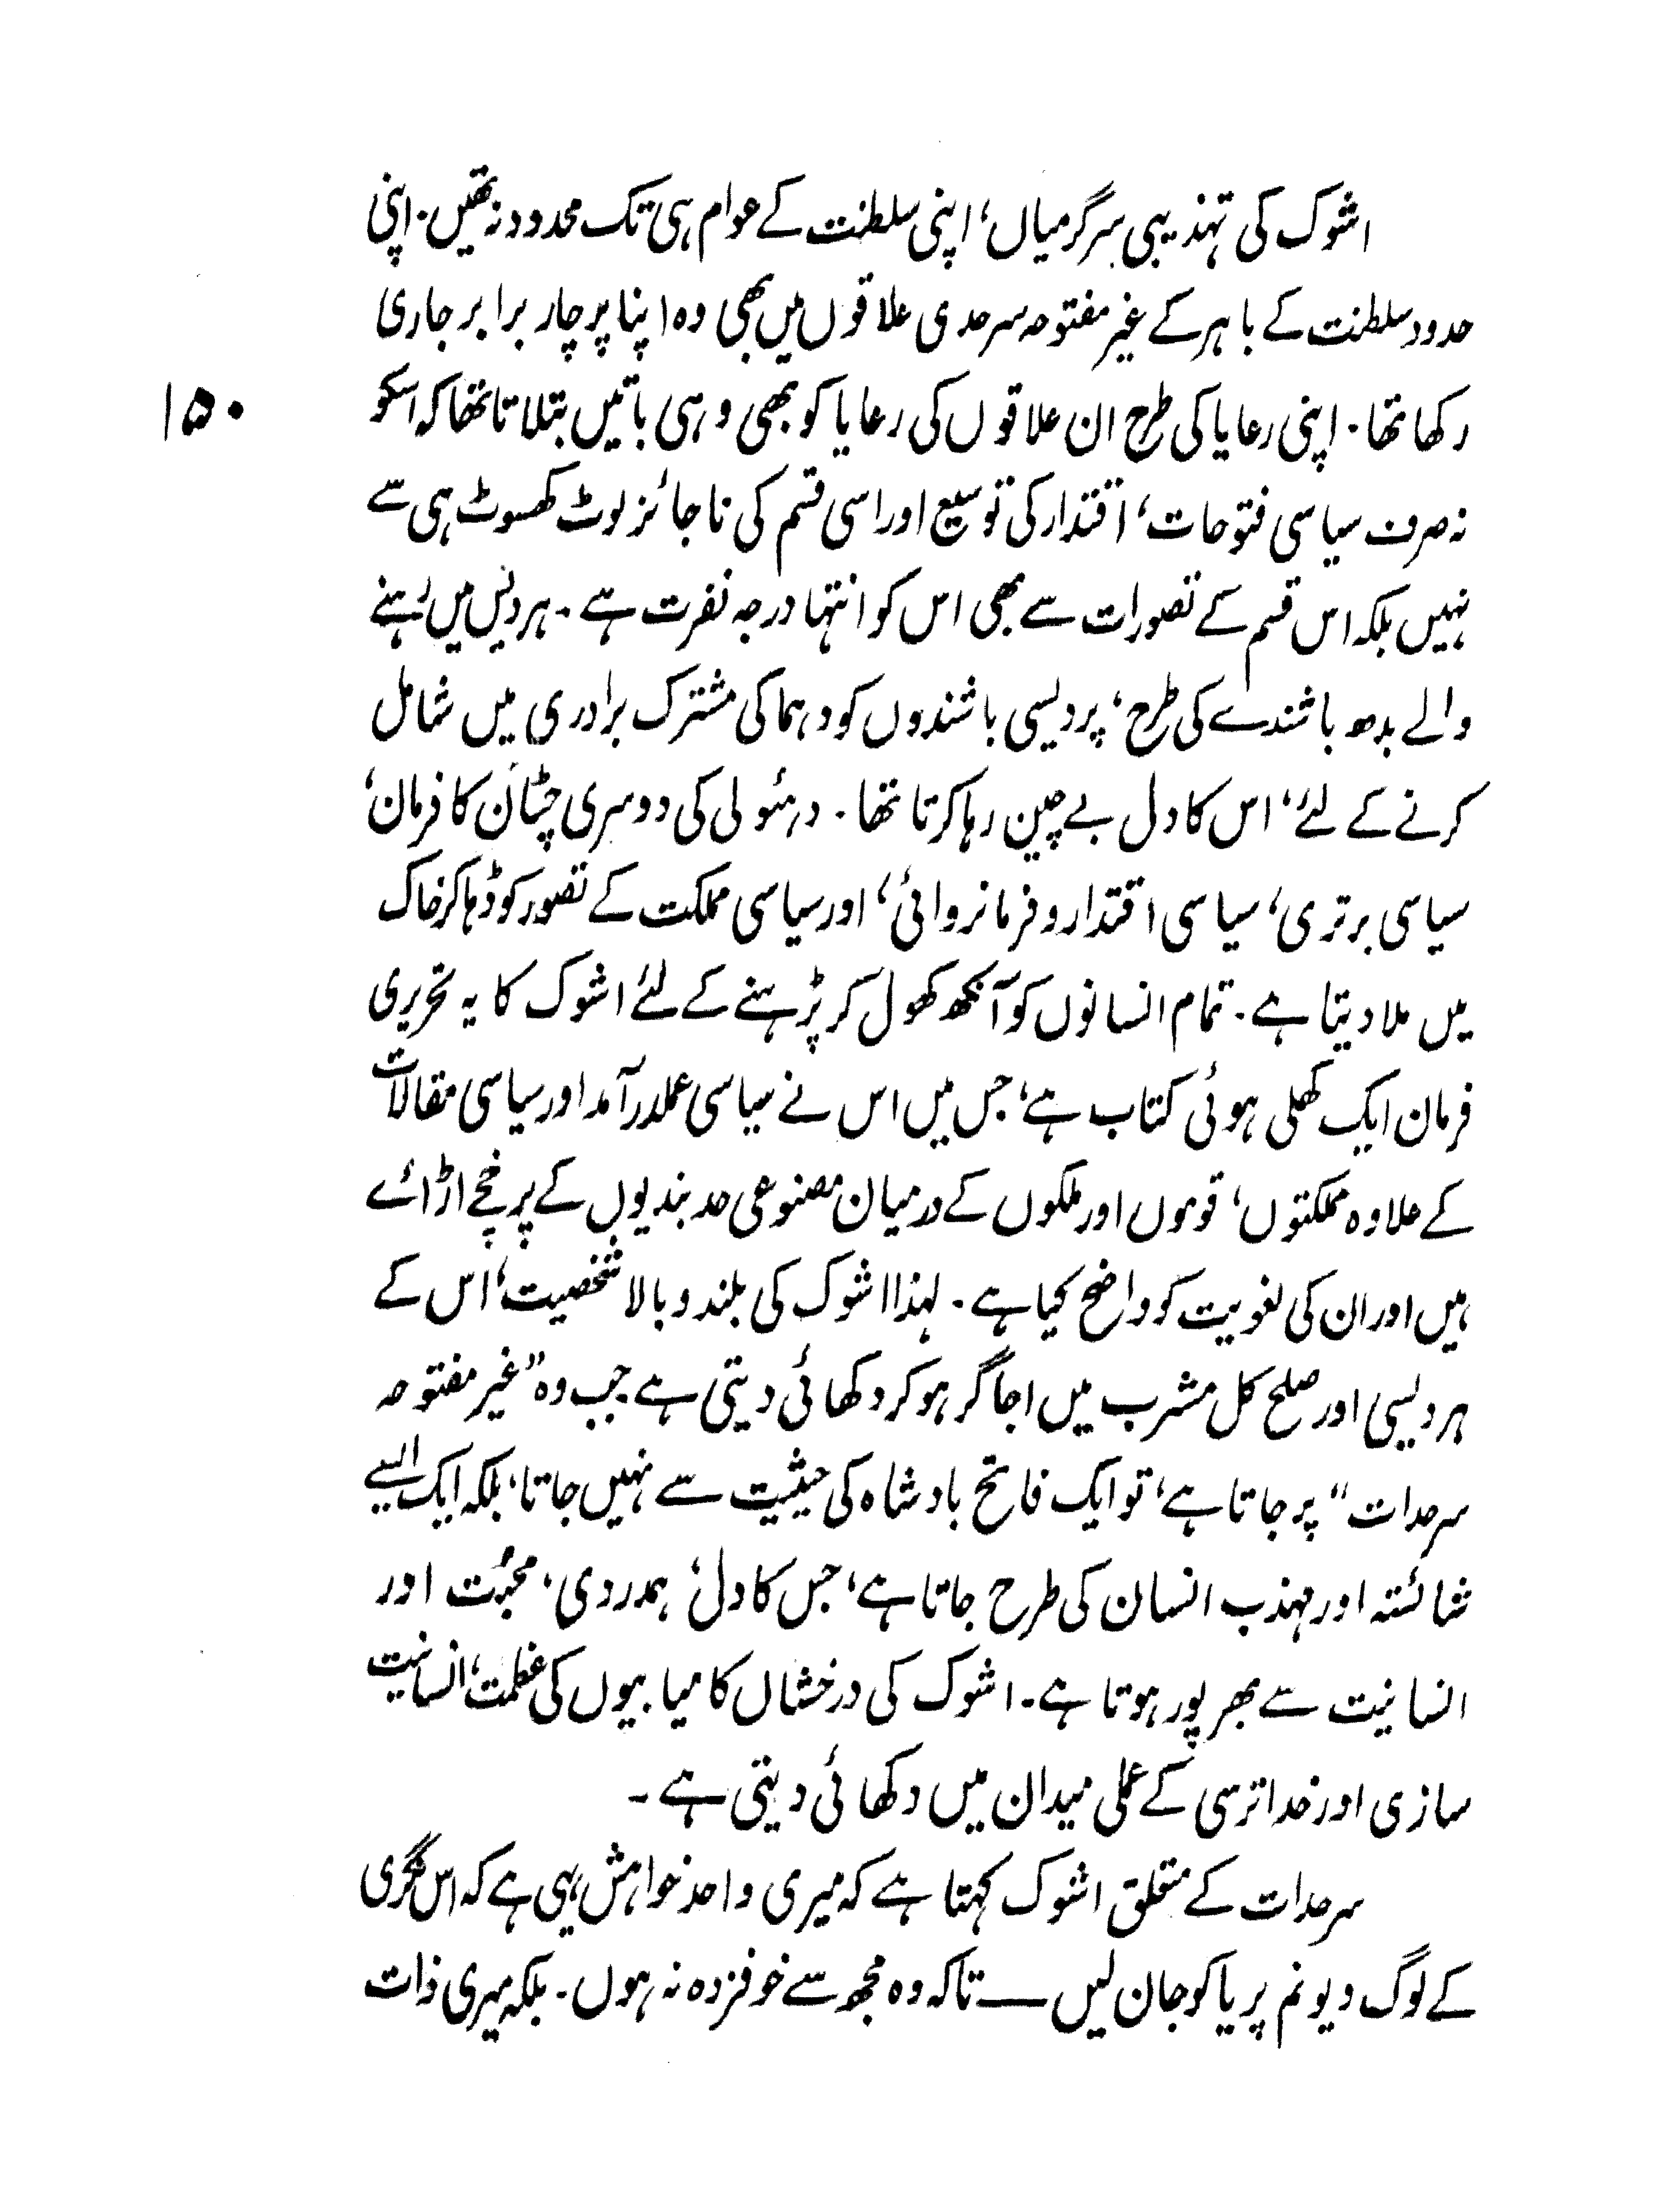 اشوک کی تہذیبی سرگرمیاں، اپنی سلطنت کے عوام ہی تک محدود نہ تھیں۔ اپنی
حدود سلطنت کے باہر کے غیر مفتوحہ سرحدی علاقوں میں بھی وہ اپنا پرچار برابر جاری
رکھا تھا۔ اپنی رعایا کی طرح ان علاقوں کی رعایا کو بھی وہی باتیں بتلاتا تھا کہ اسکو
۱۵۰
نہ صرف سیاسی فتوحات، اقتدار کی توسیع اور اسی قسم کی ناجائز لوٹ کھسوٹ ہی سے
نہیں بلکہ اس قسم کے تصورات سے بھی اس کو انتہا درجہ نفرت ہے۔ ہر دیس میں رہنے
والے بدھ باشندے کی طرح، پردیسی باشندوں کو دہما کی مشترک برادری میں شامل
کرنے کے لئے، اس کا دل بے چین رہا کرتا تھا۔ دہئولی کی دوسری چٹان کا فرمان،
سیاسی برتری، سیاسی اقتدار و فرمانروائی، اور سیاسی مملکت کے تصور کو ڈہا کر خاک
میں ملا دیتا ہے۔ تمام انسانوں کو آنکھ کھول کر پڑہنے کے لئے اشوک کا یہ تحریری
فرمان ایک کھلی ہوئی کتاب ہے، جس میں اس نے سیاسی عملدرآمد اور سیاسی مقالات
کے علاوہ مملکتوں، قوموں اور ملکوں کے درمیان مصنوعی حد بندیوں کے پرخچے اڑائے
ہیں اور ان کی لغویت کو واضح کیا ہے۔ لہذا اشوک کی بلند و بالا شخصیت، اس کے
ہر دیسی اور صلح کل مشرب میں اجاگر ہو کر دکھائی دیتی ہے جب وہ ”غیر مفتوحہ
سرحدات“ پر جاتا ہے، تو ایک فاتح بادشاہ کی حیثیت سے نہیں جاتا، بلکہ ایک ایسے
شائستہ اور مہذب انسان کی طرح جاتا ہے، جس کا دل، ہمدردی، محبّت اور
انسانیت سے بھرپور ہوتا ہے۔ اشوک کی درخشاں کامیابیوں کی عظمت، انسانیت
سازی اور خدا ترسی کے عملی میدان میں دکھائی دیتی ہے۔
سرحدات کے متعلق اشوک کہتا ہے کہ میری واحد خواہش یہی ہے کہ اس نگری
کے لوگ دیونم پریا کو جان لیں — تاکہ وہ مجھ سے خوفزدہ نہ ہوں۔ بلکہ میری ذات